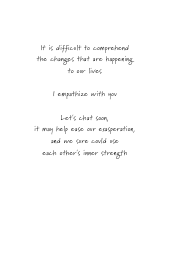 It is difficult to comprehend
the changes that are happening,
to our lives
I empathize with you
Let's chat soon,
it may help ease our exasperation,
and we sure could use
each other's inner strength